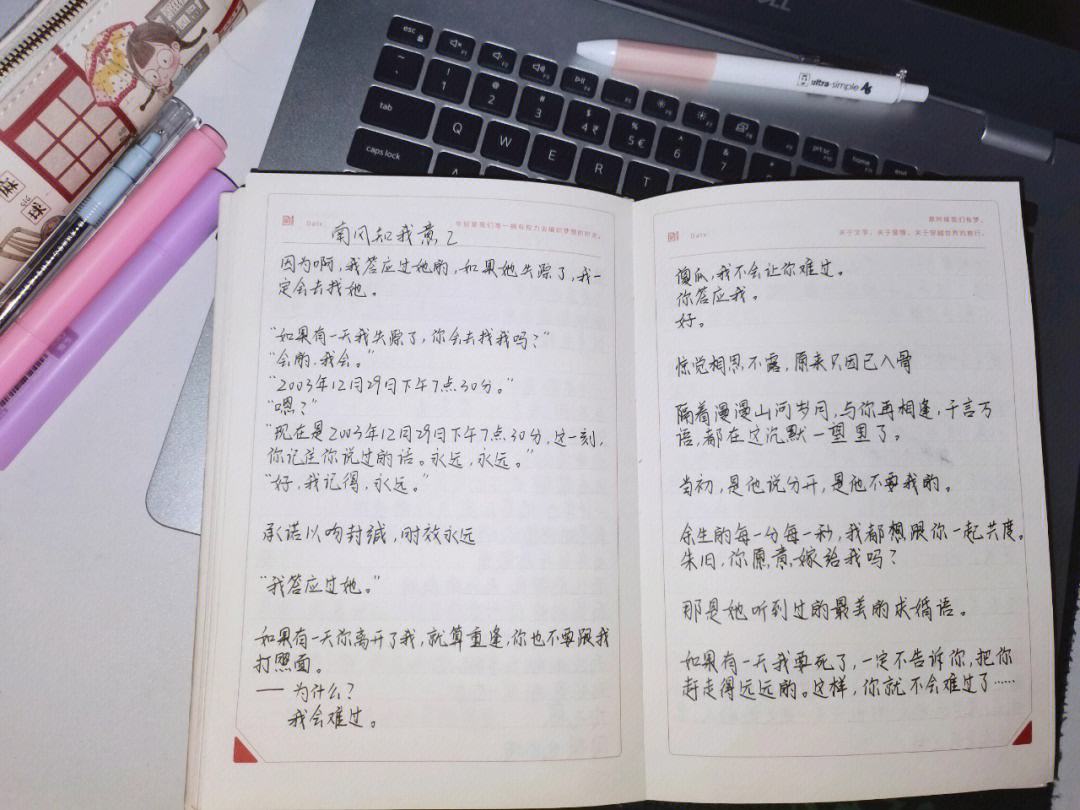 DELL
esc
F1
F2
F3
F4
F5
F6
F7
prt sc
home
tab
caps lock
Q
W
E
R
T
A
1
2
3
4
5
6
7
ultra·simple
球
Date:
年轻是我们唯一拥有权力去编织梦想的时光。
南风知我意2
因为啊,我答应过她的,如果她失踪了,我一
定会去找她。
“如果有一天我失踪了,你会去找我吗?”
“会的.我会。”
“2003年12月29日下午7点30分。”
“嗯?”
“现在是2003年12月29日下午7点30分,这一刻,
你记住你说过的话。永远,永远。”
“好,我记得,永远。”
承诺以吻封缄,时效永远
“我答应过她。”
如果有一天你离开了我,就算重逢,你也不要跟我
打照面。
—— 为什么?
我会难过。
那时候我们有梦,
Date:
关于文学,关于爱情,关于穿越世界的旅行。
傻瓜,我不会让你难过。
你答应我。
好。
惊觉相思不露,原来只因已入骨
隔着漫漫山河岁月,与你再相逢,千言万
语,都在这沉默一望里了。
当初,是他说分开,是他不要我的。
余生的每一分每一秒,我都想跟你一起共度。
朱旧,你愿意嫁给我吗?
那是她听到过的最美的求婚语。
如果有一天我要死了,一定不告诉你,把你
赶走得远远的。这样,你就不会难过了……